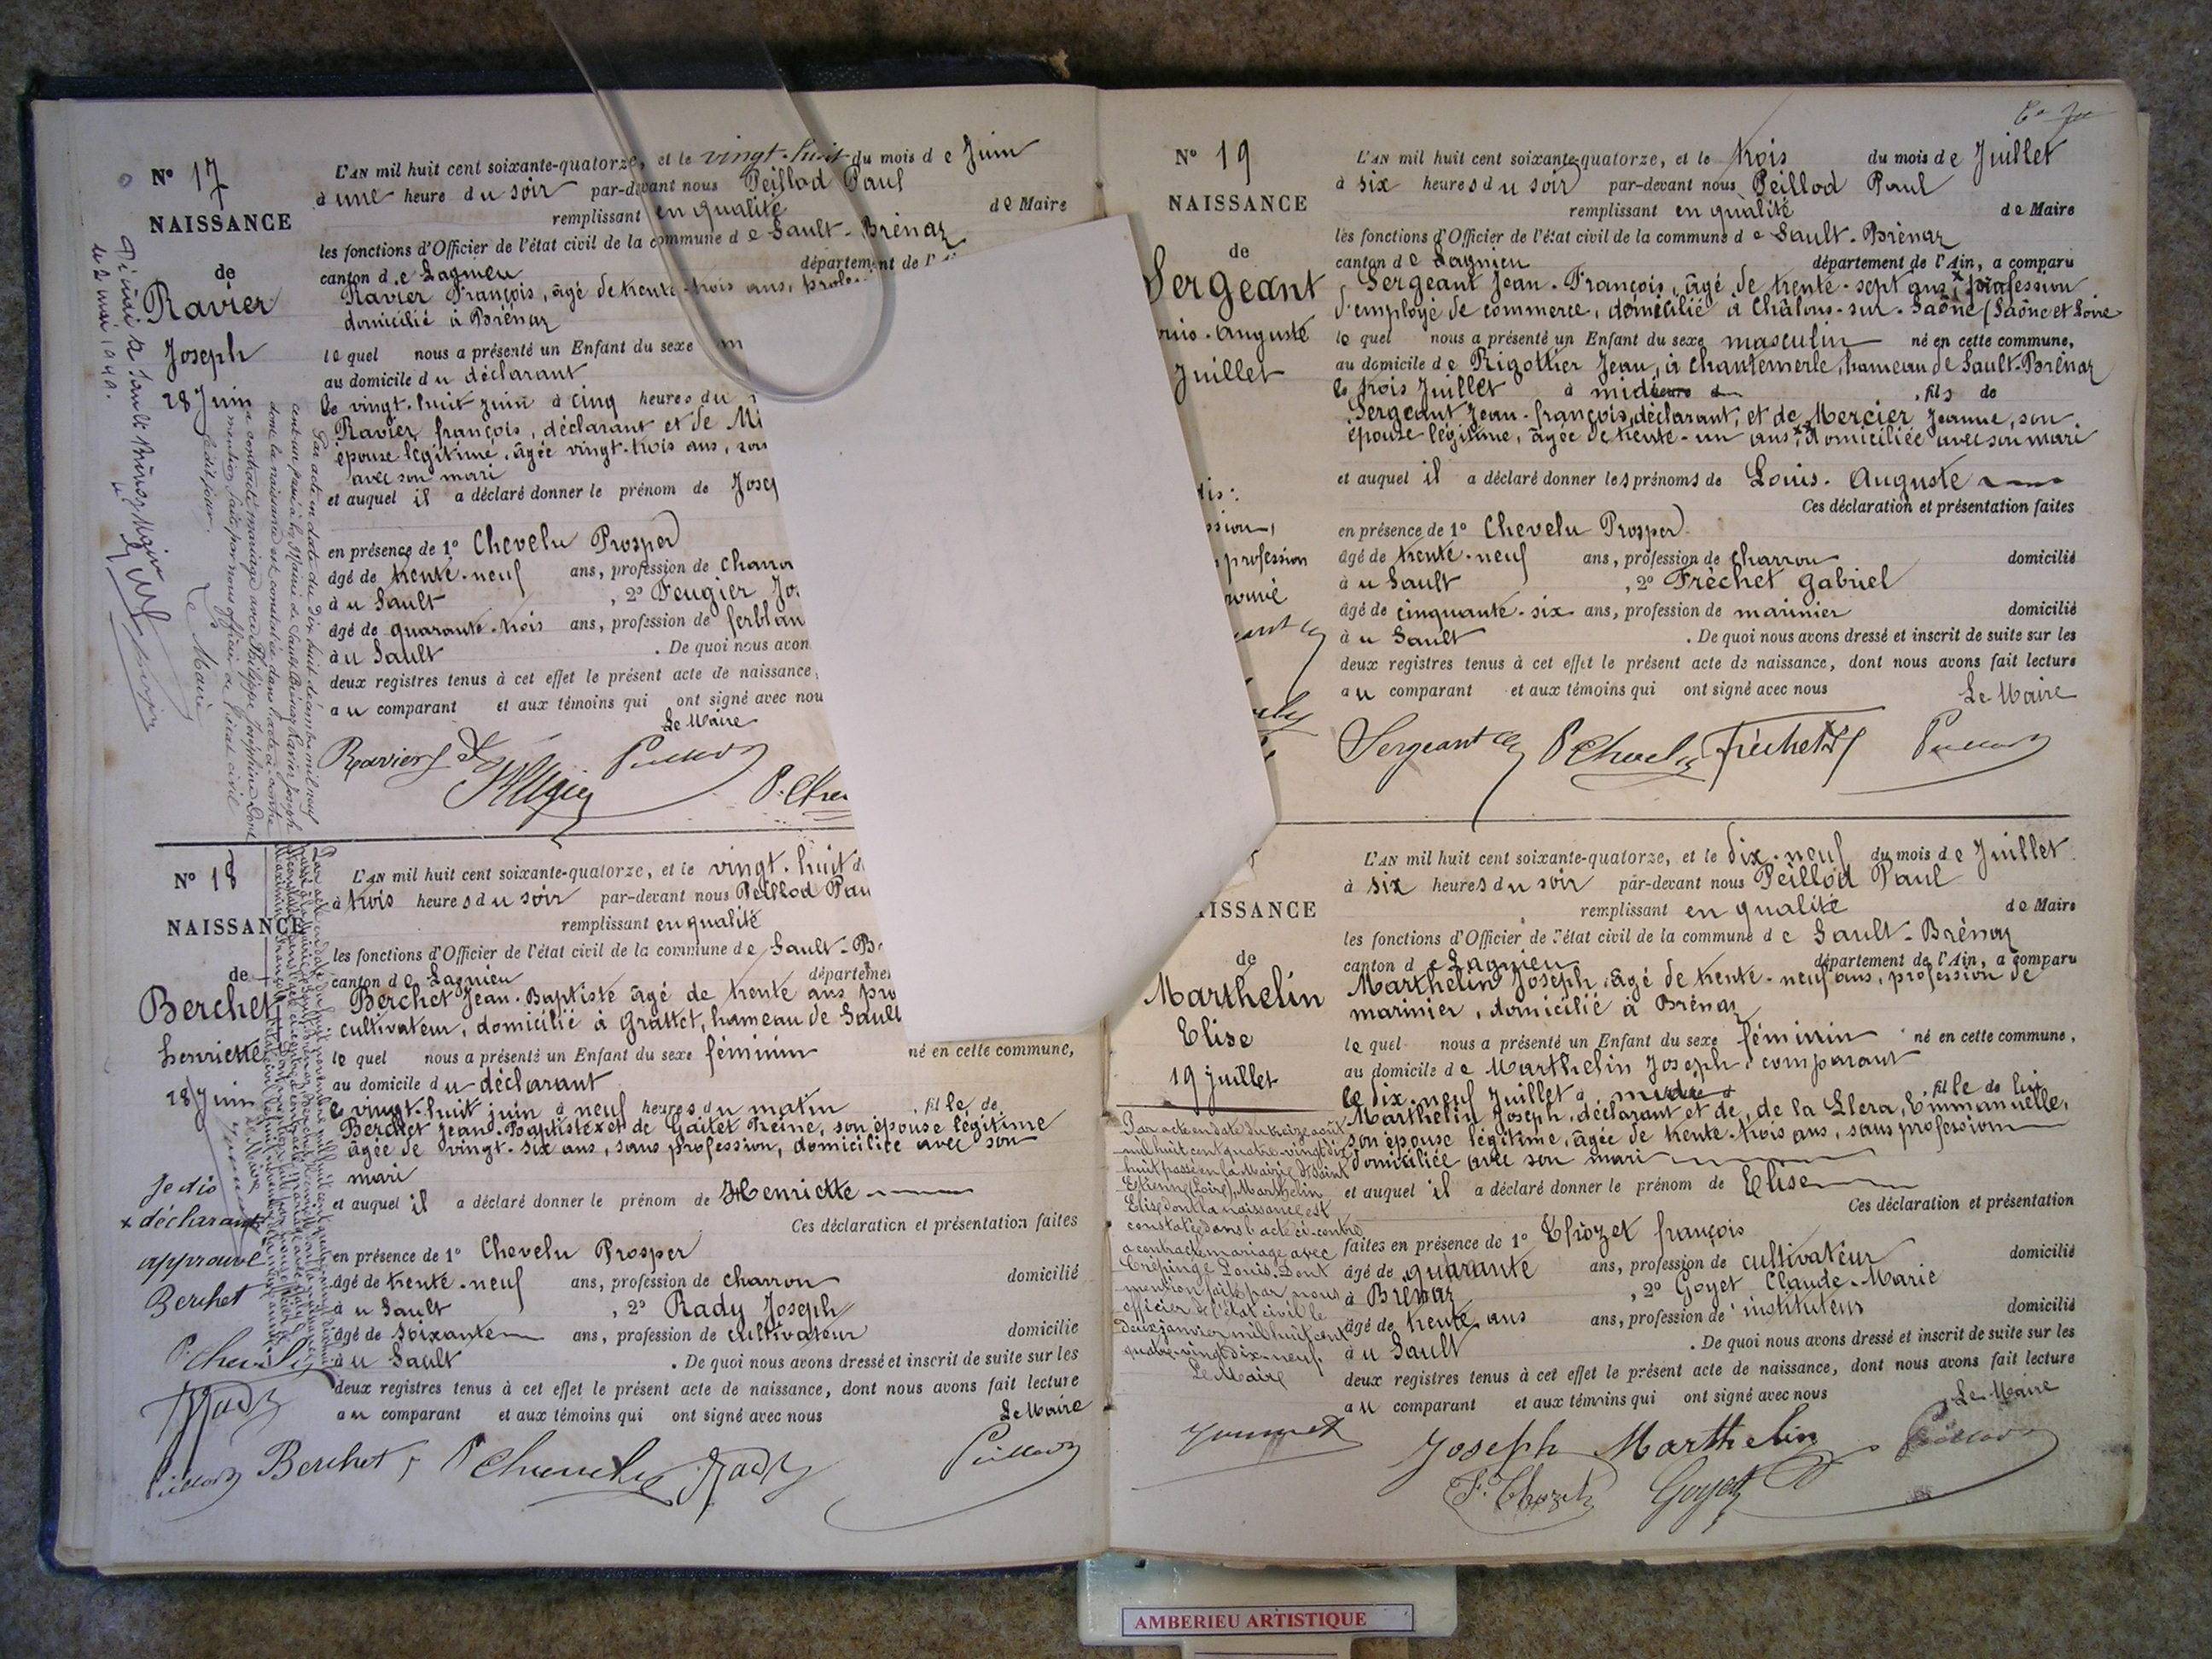 N° 17
NAISSANCE
de
Ravier
Joseph
28 Juin
L'AN mil huit cent soixante-quatorze, et le vingt-huit du mois de Juin
à une heure du soir par-devant nous Peillod Paul
remplissant en qualité de Maire
les fonctions d'Officier de l'état civil de la commune de Sault-Brénaz
canton de Lagnieu département de l'
Ravier François, âgé de trente-trois ans,
domicilié à Brénaz
lequel nous a présenté un Enfant du sexe m
au domicile du déclarant
le vingt-huit juin à cinq heures du
Ravier françois, déclarant et de Mi
épouse légitime, âgée vingt-trois ans,
avec son mari
et auquel il a déclaré donner le prénom de Jose
en présence de 1° Chevelu Prosper
âgé de trente-neuf ans, profession de charro
à u Sault , 2° Feugier Jo
âgé de quarante-trois ans, profession de ferblan
à u Sault . De quoi nous avon
deux registres tenus à cet effet le présent acte de naissance,
au comparant et aux témoins qui ont signé avec nou
Le Maire
Ravier
Le Maire
N° 18
NAISSANCE
de
Berchet
henriette
28 Juin
Je dis
x déclarant
approuvé
Berchet
L'AN mil huit cent soixante-quatorze, et le vingt-huit d
à trois heures du soir par-devant nous Peillod Pau
remplissant en qualité
les fonctions d'Officier de l'état civil de la commune de Sault-B
canton de Lagnieu départeme
Berchet Jean-Baptiste âgé de trente ans pro
cultivateur, domicilié à Grattet, hameau de Sault
lequel nous a présenté un Enfant du sexe féminin né en cette commune,
au domicile du déclarant
le vingt-huit juin à neuf heures du matin , fille de
Berchet Jean-Baptiste x et de Gaitet Reine, son épouse légitime
âgée de vingt-six ans, sans profession, domiciliée avec son
mari
et auquel il a déclaré donner le prénom de Henriette
Ces déclaration et présentation faites
en présence de 1° Chevelu Prosper
âgé de trente-neuf ans, profession de charron domicilié
à u Sault , 2° Rady Joseph
âgé de soixante ans, profession de cultivateur domicilié
à u Sault . De quoi nous avons dressé et inscrit de suite sur les
deux registres tenus à cet effet le présent acte de naissance, dont nous avons fait lecture
au comparant et aux témoins qui ont signé avec nous Le Maire
Berchet
N° 19
NAISSANCE
de
Sergeant
Auguste
Juillet
profession
L'AN mil huit cent soixante-quatorze, et le trois du mois de Juillet
à six heures du soir par-devant nous Peillod Paul
remplissant en qualité de Maire
les fonctions d'Officier de l'état civil de la commune de Sault-Brénaz
canton de Lagnieu département de l'Ain, a comparu
Sergeant Jean-François, âgé de trente-sept ans, profession
d'employé de commerce, domicilié à Châlons-sur-Saône (Saône et Loire
lequel nous a présenté un Enfant du sexe masculin né en cette commune,
au domicile de Rigottier Jean, à Chantemerle, hameau de Sault-Brénaz
le trois Juillet à midi , fils de
Sergeant Jean-françois, déclarant, et de Mercier Jeanne, son
épouse légitime, âgée de trente-un ans, domiciliée avec son mari
et auquel il a déclaré donner les prénoms de Louis-Auguste
Ces déclaration et présentation faites
en présence de 1° Chevelu Prosper
âgé de trente-neuf ans, profession de charron domicilié
à u Sault , 2° Fréchet Gabriel
âgé de cinquante-six ans, profession de marinier domicilié
à u Sault . De quoi nous avons dressé et inscrit de suite sur les
deux registres tenus à cet effet le présent acte de naissance, dont nous avons fait lecture
au comparant et aux témoins qui ont signé avec nous Le Maire
Sergeant
ISSANCE
de
Marthelin
Elise
19 Juillet
Par acte en date du treize août
mil huit cent quatre-vingt dix
huit passé en la Mairie de Saint
Etienne (Loire), Marthelin
Elise dont la naissance est
constatée dans l'acte ci-contre
a contracté mariage avec
Crépinge Louis. Dont
mention faite par nous
officier de l'état civil le
deux janvier mil huit cent
quatre-vingt dix-neuf.
Le Maire
L'AN mil huit cent soixante-quatorze, et le dix-neuf du mois de Juillet
à six heures du soir par-devant nous Peillod Paul
remplissant en qualité de Maire
les fonctions d'Officier de l'état civil de la commune de Sault-Brénaz
canton de Lagnieu département de l'Ain, a comparu
Marthelin Joseph, âgé de trente-neuf ans, profession de
marinier, domicilié à Brénaz
lequel nous a présenté un Enfant du sexe féminin né en cette commune,
au domicile de Marthelin Joseph comparant
le dix-neuf Juillet à midi fille de lui
Marthelin Joseph, déclarant et de, de la Llera, Emmanuelle,
son épouse légitime, âgée de trente-trois ans, sans profession
domiciliée avec son mari
et auquel il a déclaré donner le prénom de Elise
Ces déclaration et présentation
faites en présence de 1° Thozet françois
âgé de quarante ans, profession de cultivateur domicilié
à Brénaz , 2° Goyet Claude-Marie
âgé de trente ans ans, profession de instituteur domicilié
à u Sault . De quoi nous avons dressé et inscrit de suite sur les
deux registres tenus à cet effet le présent acte de naissance, dont nous avons fait lecture
au comparant et aux témoins qui ont signé avec nous Le Maire
Joseph Marthelin
Goyet
AMBERIEU ARTISTIQUE